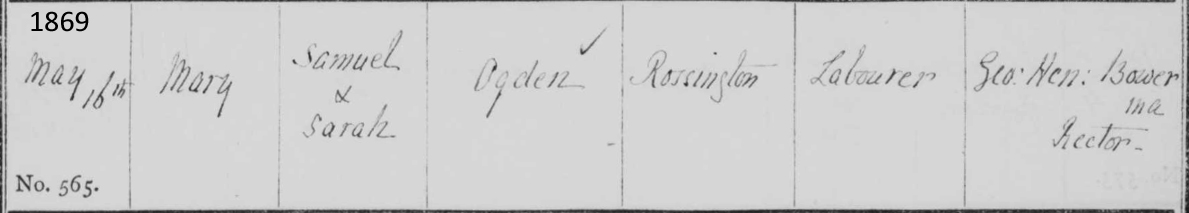 1869
May 16th
Mary
Samuel
&
Sarah
Ogden
Rossington
Labourer
Geo: Hen: Bower
MA
Rector
No. 565.